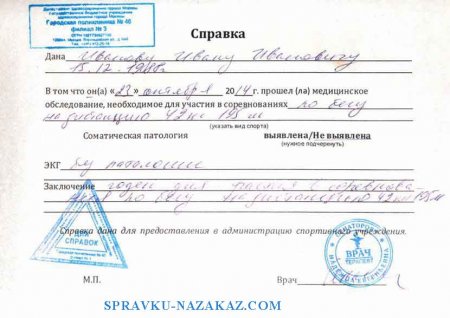 Городская поликлиника № 46
филиал № 3
Справка
Дана Иванову Ивану Ивановичу
15.12.
В том что он(а) «23» октября 2014 г. прошел (ла) медицинское
обследование, необходимое для участия в соревнованиях по бегу
на дистанцию 42 км 195 м
(указать вид спорта)
Соматическая патология выявлена/Не выявлена
(нужное подчеркнуть)
ЭКГ без патологии
Заключение годен для участия в соревнова-
по бегу на 42 км 195 м
Справка дана для предоставления в администрацию спортивного учреждения.
ДЛЯ
СПРАВОК
ВРАЧ
М.П. Врач
SPRAVKU-NAZAKAZ.COM